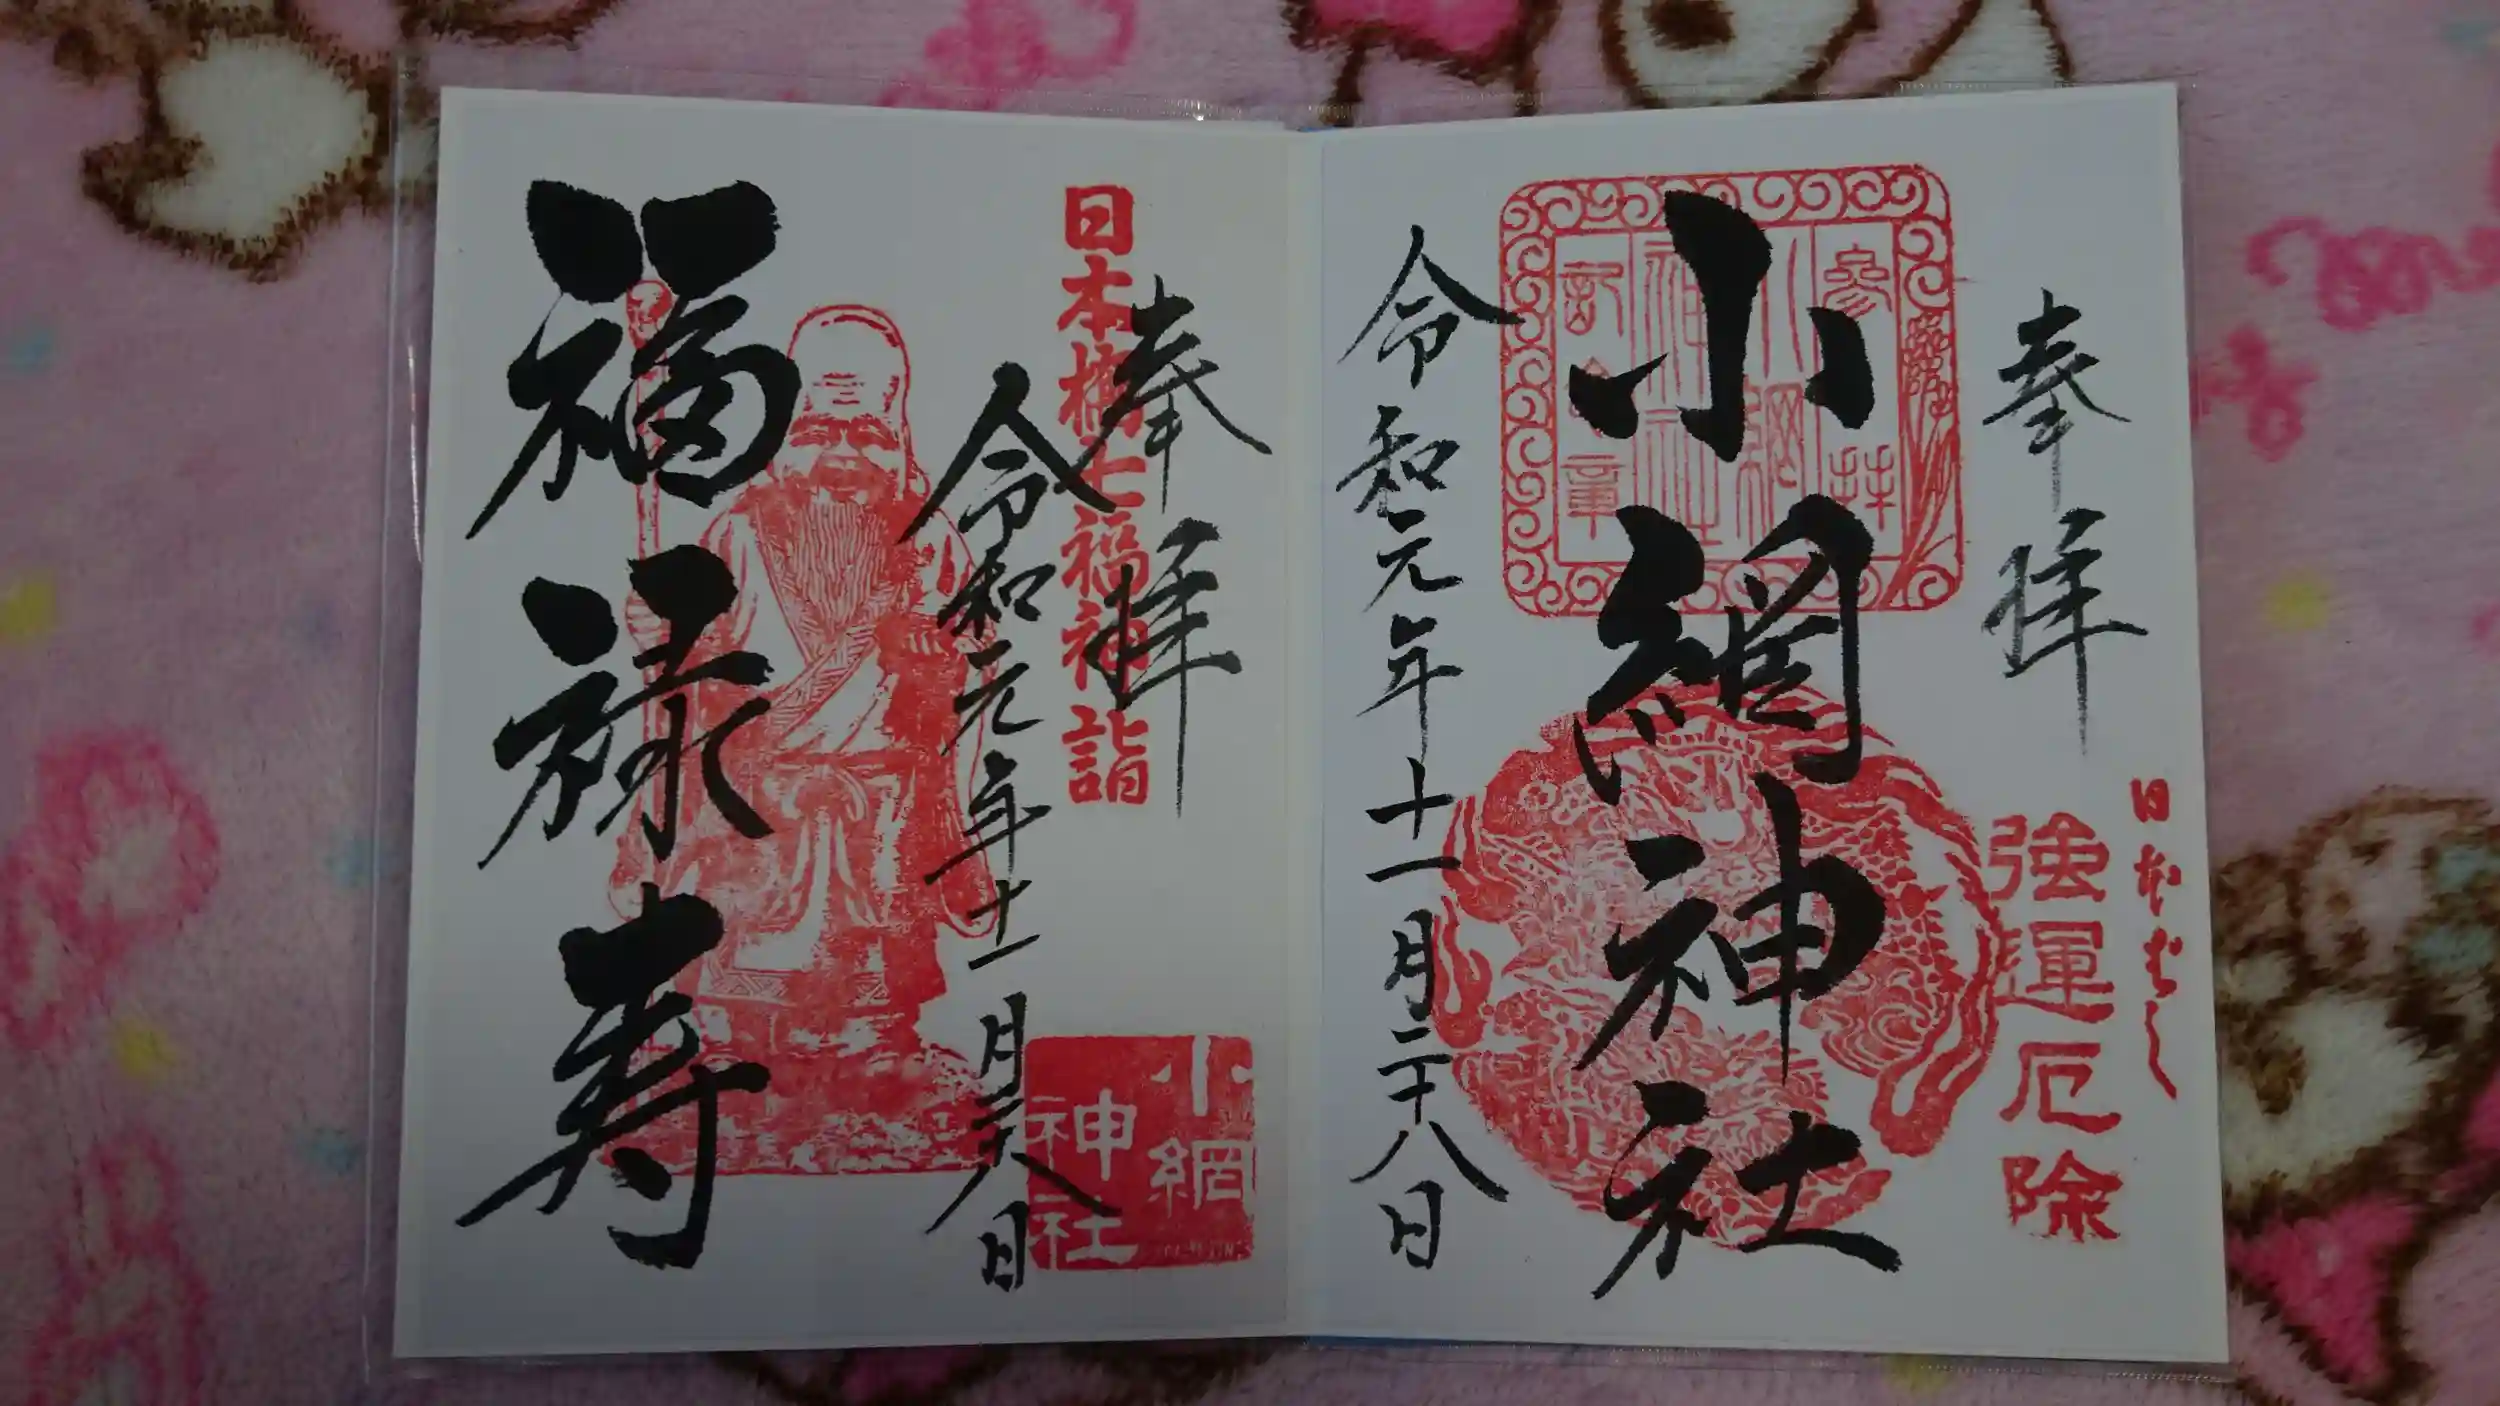 奉拝
日本ばし
強運厄除
參拝
小網
神社
記念章
小網神社
令和元年十一月二十八日
奉拝
日本橋七福神詣
令和元年十一月二十八日
小網
神社
福禄寿